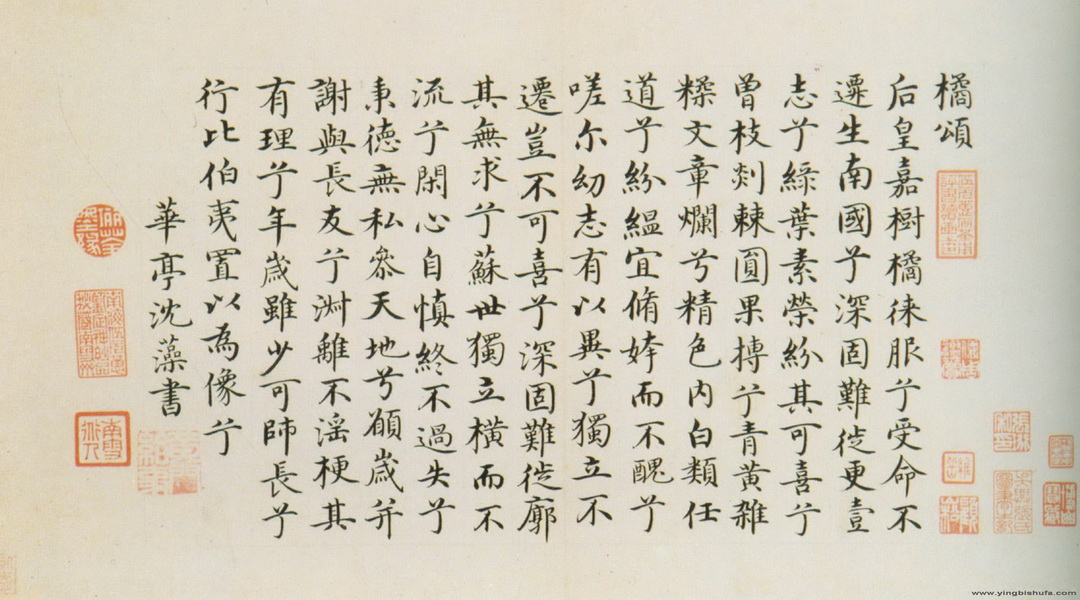 橘頌
后皇嘉樹橘徠服兮受命不
遷生南國兮深固難徙更壹
志兮綠葉素榮紛其可喜兮
曾枝剡棘圓果摶兮青黃雜
糅文章爛兮精色內白類任
道兮紛縕宜脩姱而不醜兮
嗟尓幼志有以異兮獨立不
遷豈不可喜兮深固難徙廓
其無求兮蘇世獨立橫而不
流兮閑心自慎終不過失兮
秉德無私參天地兮願歲并
謝與長友兮淑離不淫梗其
有理兮年歲雖少可師長兮
行比伯夷置以為像兮
華亭沈藻書
南雪
www.yingbishufa.com